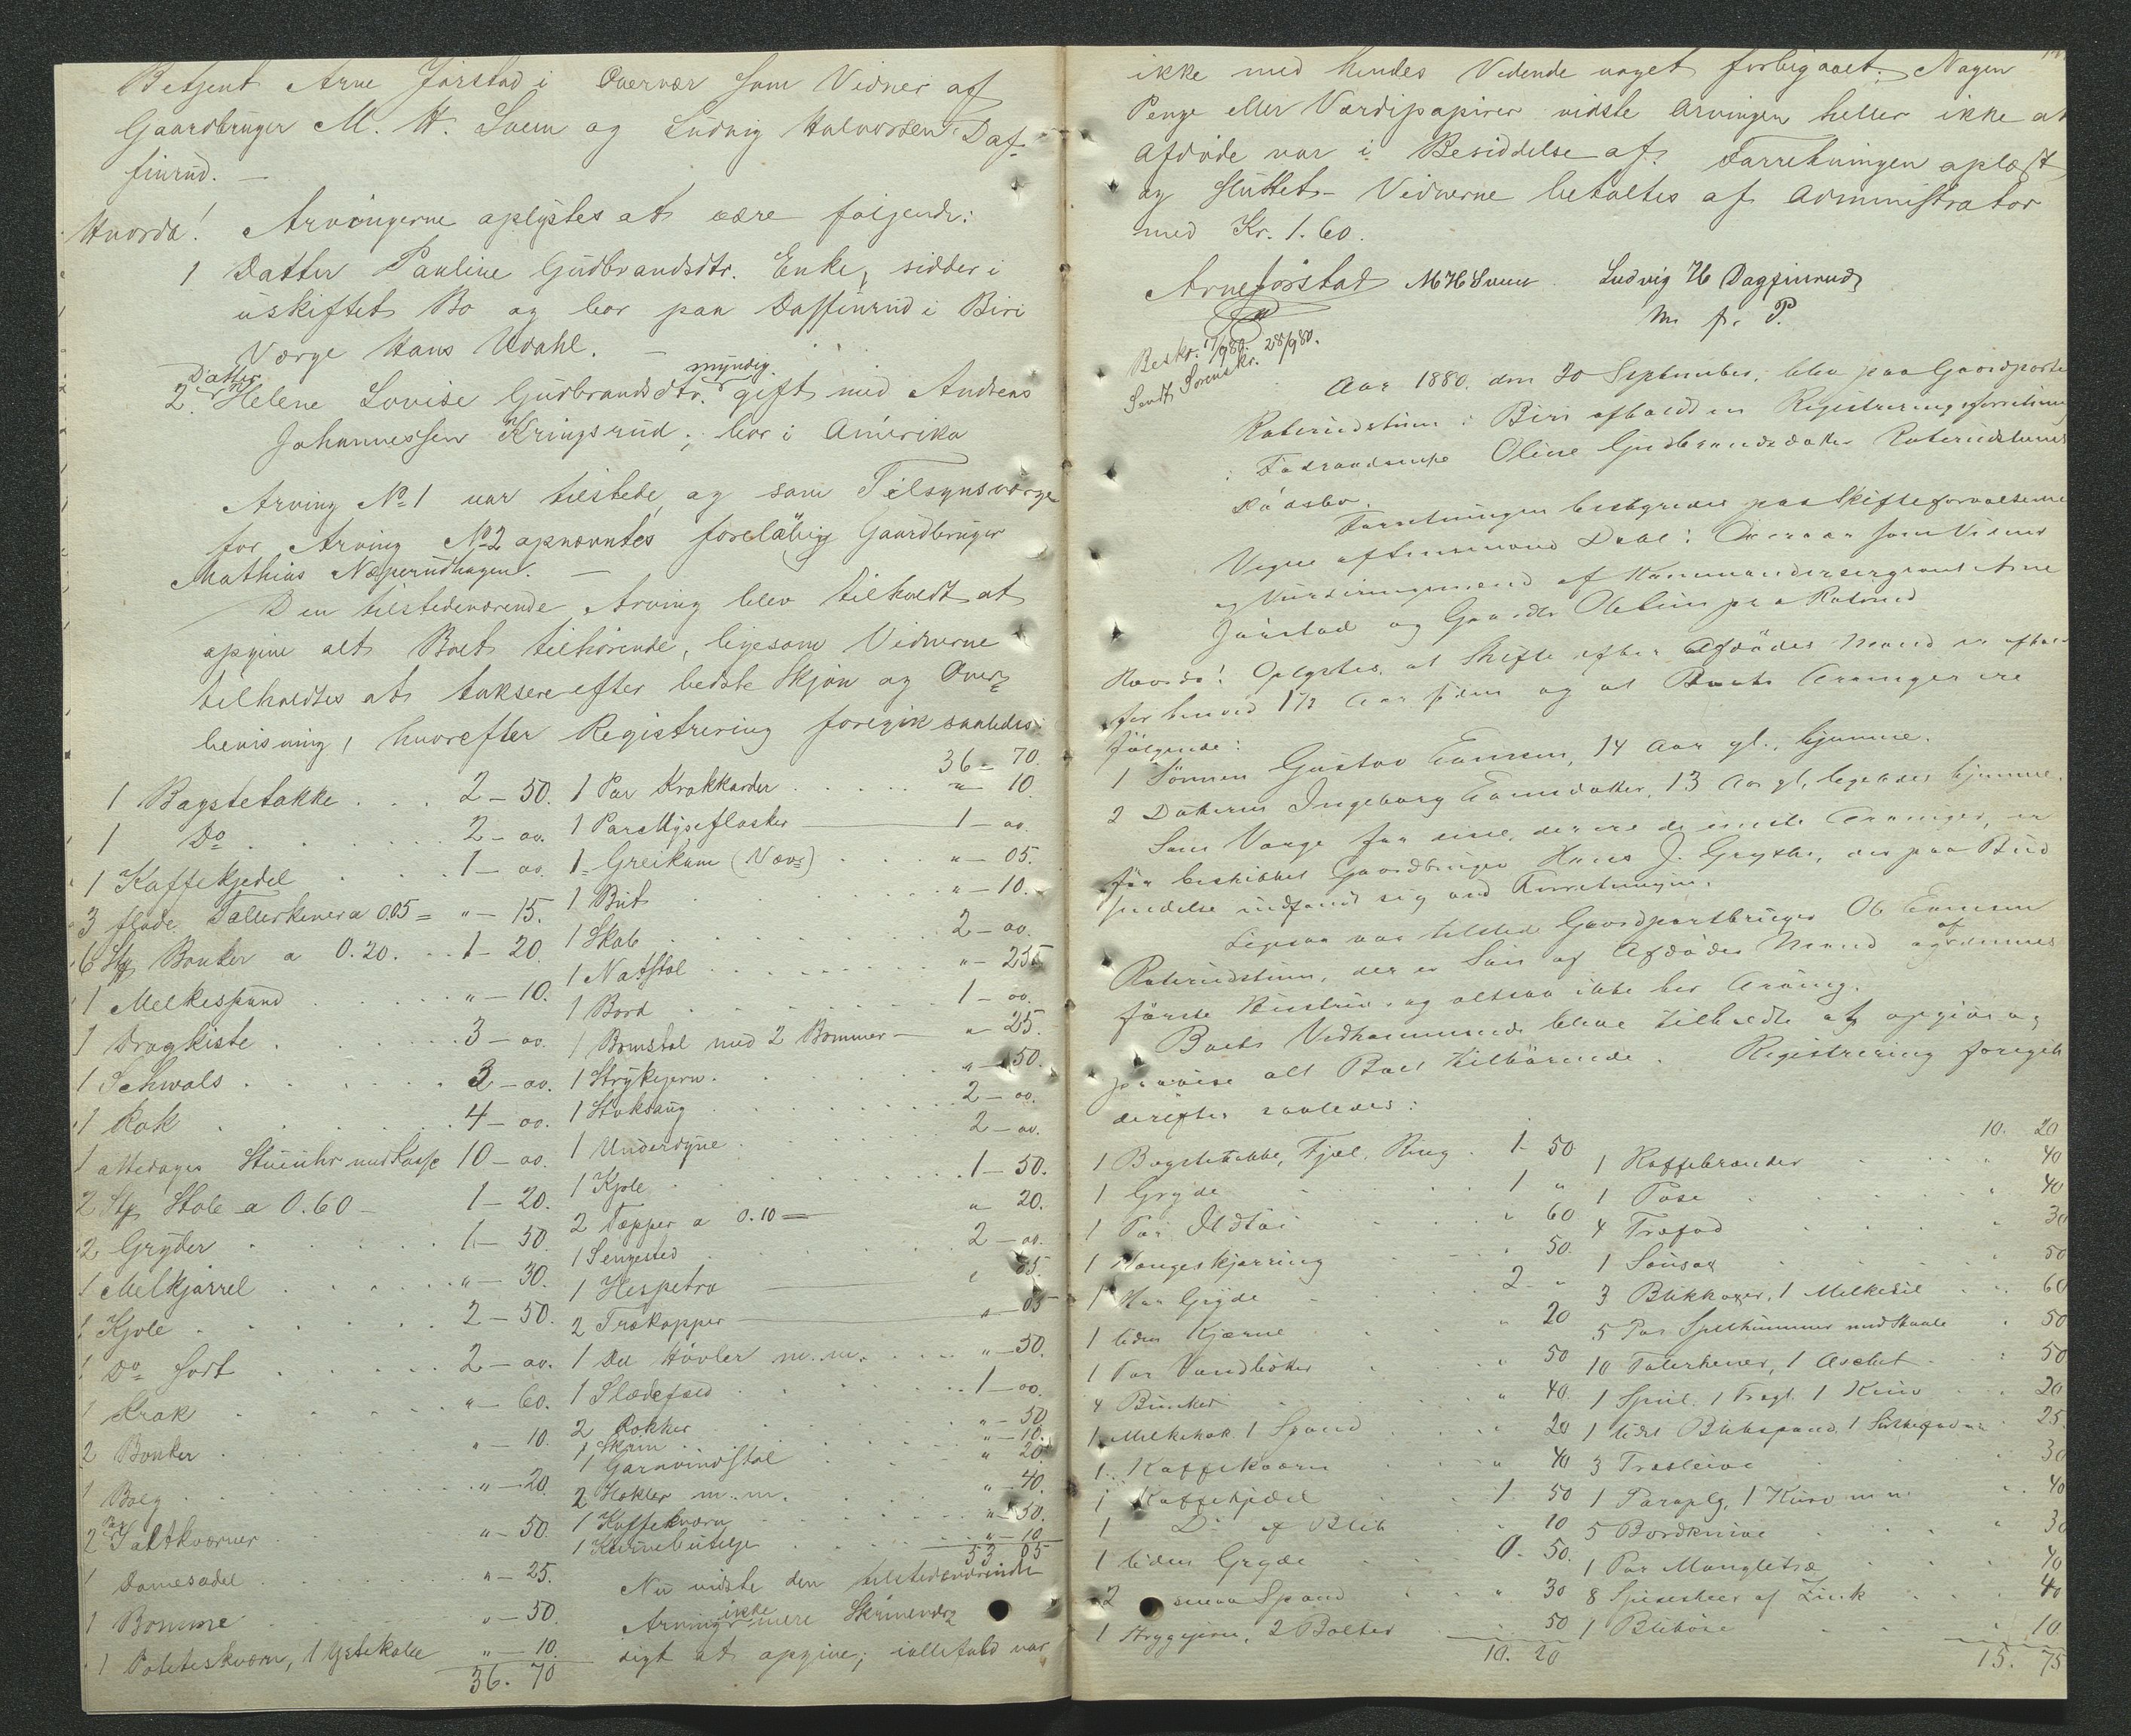 Betjent Arne Jørstad i Overvær som Vidner af
Gaardbruger M. H. Svem og Ludvig Halvorsen Daf-
finrud. —
Hvorda! Arvingerne oplystes at være følgende:
1 Datter Pauline Gudbrandsdtr. Enke, sidder i
uskiftet Bo og bor paa Daffinrud i Biri
Værge Hans Udahl. —
2. Datter Helene Lovise Gudbrandsdtr. myndig. gift med Andreas
Johannessen Kringsrud; bor i Amerika
Arving No 1 var tilstede, og som Tilsynsværge
for Arving No 2 opnævntes foreløbig Gaardbruger
Mathias Næperudhagen. —
Den tilstedeværende Arving blev tilholdt at
opgive alt Boet tilhørende, ligesom Vidnerne
tilholdtes at taksere efter bedste Skjøn og Over-
bevisning, hvorefter Registrering foregik saaledes:
1 Bagstetakke . . . 2 – 50.
1 Do . . . 2 – oo.
1 Kaffekjedel . . . 1 – oo.
3 flade Tallerkener a 0.05 = " – 15.
6 Stk Bonker a 0.20. . . 1 – 20.
1 Melkespand . . . " – 10.
1 Dragkiste . . . 3 – oo.
1 Schwals . . . 3 – oo.
1 Rok . . . 4 – oo.
1 ottedages Stueuhr med Kasse 10 – oo.
2 Stk Stole a 0.60 – 1 – 20.
2 Gryder . . . 1 – 50.
1 Melkjørrel . . . " – 30.
1 Kjole . . . 2 – 50.
1 Do sort . . . 2 – oo.
1 Krak . . . " – 60.
2 Bonker . . . " – 10.
1 Bolg . . . " – 20.
2 Par Saltkværner . . . " – 50.
1 Damesadel . . . " – 25.
1 Bomme . . . " – 50.
1 Poteteskværn, 1 Ystekolle " – 10.
36. 70
36 – 70.
1 Par Krakkarder . . . " – 10.
1 Par Myseflasker — 1 – oo.
1 Greikum (Næver) . . . " – 05.
1 But . . . " – 10.
1 Skab . . . 2 – oo.
1 Natstol . . . " – 25
1 Bord . . . 1 – oo.
1 Bomstol med 2 Bommer – " – 25.
1 Strykejern . . . " – 50.
1 Stoksaug . . . 2 – oo.
1 Underdyne . . . 2 – oo.
1 Kjole . . . 1 – 50.
2 Tepper a 0.10 = " 20.
1 Sengested . . . 2 – oo.
1 Hespetra — " 05.
2 Trækopper — " – 05
1 Del Høvler m. m. . . . " – 50.
1 Slædefæld . . . 1 – oo.
2 Rokker . . . " – 50
1 Skrin . . . " – 10.
1 Garnvindstol . . . " 20.
2 Hekler m. m. . . . " – 40.
1 Kaffekværn . . . " – 50.
1 . . . " – 10
53 05
Nu vidste den tilstedeværende
Arving ikke mere Skrivever-
digt at opgive; iallefald var
ikke med hendes Vidende noget forbigaaet; Nogen
Penge eller Værdipapirer vidste Arvingen heller ikke at
Afdøde var i Besiddelse af. Forretningen oplæst
og sluttet – Vidnerne betaltes af Administrator
med Kr. 1.60.
Arne Jørstad M H Svem Ludvig H Dagfinrud
m. p. P.
Beskr. 17/9 80.
Sendt Sorenskr. 28/9 80.
Aar 1880. den 20 September, blev paa Gaardparten
Roterudstuen i Biri afholdt en Registreringsforretning
i Fødraadsenke Oline Gudbrandsdatter Roterudstuens
Dødsbo.
Forretningen bestyredes paa Skifteforvalterens
Vegne af Lensmand Dahl i Overvær som Vidner
og Vurderingsmænd af Kommandersergeant Arne
Jørstad og Gaardbr Ole Lien paa Roterud
Hvorda! Oplystes, at Skifte efter Afdødes Mand er afholdt
for henved 1½ Aar siden og at Boets Arvinger ere
følgende:
1 Sønnen Gustav Evensen, 14 Aar gl., hjemme.
2 Datteren Ingeborg Evensdatter, 13 Aar gl., ligeledes hjemme.
Som Værge for disse, der ere de eneste Arvinger, er
før beskikket Gaardbruger Hans J. Grythe, der paa Bud-
sendelse indfandt sig ved Forretningen.
Ligesaa var tilstede Gaardpartbruger Ole Evensen
Roterudstuen, der er Søn af Afdødes Mand og af dennes
første Hustru og altsaa ikke her Arving.
Boets Vedkommende bleve tilholdte at opgive og
paavise alt Boet tilhørende. Registrering foregik
derefter saaledes:
1 Bagstetakke, Fjæl, Ring . 1. 50
1 Gryde . . . 1 "
1 Par Ildtøi . . . " 60
1 Hængeskjærring . . . " 50.
1 Gryde . . . 2 "
1 liden Kjærne . . . " 20
1 Par Vandbøtter . . . " 50
4 Bunker . . . " 40.
1 Melkekak 1 Spand . . . " 20
1 Kaffekværn . . . " 40
1 Kaffekjedel . . . 1. 50
1 Do af Blik . . . " 10
1 liden Gryde . . . 0. 50.
2 smaa Spand . . . " 30
1 Strygejern, 2 Bolter . . . 50
10. 20
10. 20
1 Kaffebrænder . . . " 40
1 Pose . . . " 40
4 Træfad . . . " 30
1 Sausax . . . " 50
3 Blikkopper, 1 Melkesil . . . 60
5 Par Spelkummer med Skaale . 50
10 Talerkener, 1 Aschet . . . 50
1 Speil. 1 Tragt. 1 Kniv . . . 20
1 lidet Blikspand, 1 . . . 25
3 Træsleive . . . 30
1 Paraply, 1 Kurv m m. . . . 40
5 Bordknive . . . " 30
1 Par Mangletræ . . . 40
8 Spiseskeer af Zink . . . 40
1 Blikøse . . . " 10
15. 75